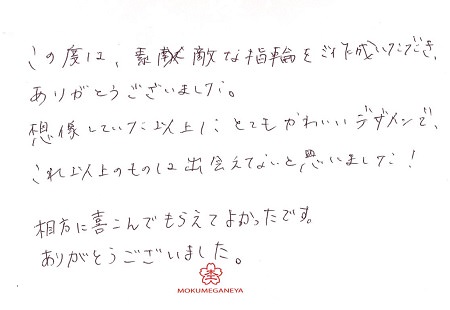 この度は、素敵な指輪をご作成いただき、
ありがとうございました。
想像していた以上にとてもかわいいデザインで、
これ以上のものは出会えてないと思いました！
相方に喜こんでもらえてよかったです。
ありがとうございました。
MOKUMEGANEYA